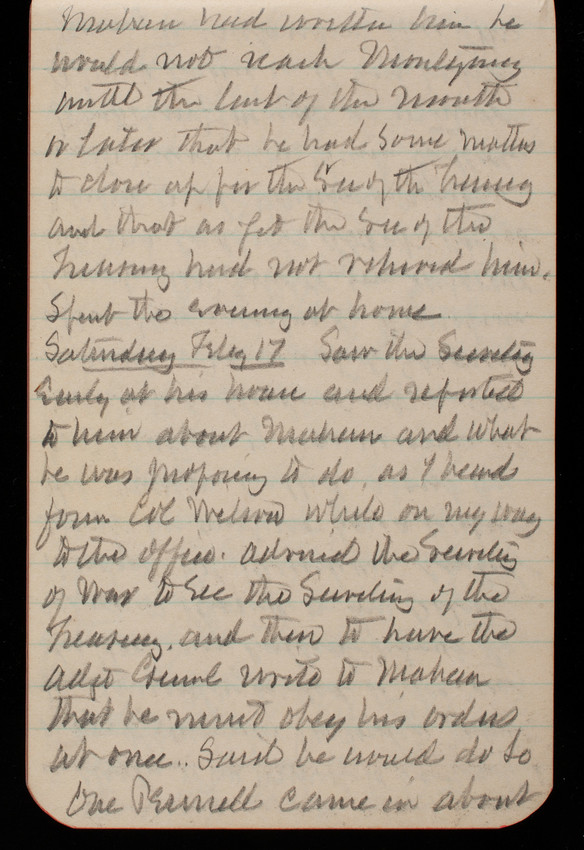 Mahan had written him he
would not reach Montgomery
until the last of the month
or later that he had some matters
to close up for the Sec of the Treasury
and that as yet the Sec of the
Treasury had not relieved him.
Spent the evening at home
Saturday Feby 17 Saw the Secretary
Early at his house and reported
to him about Mahan and what
he was proposing to do, as I heard
from Col Wilson while on my way
to the office. advised the Secretary
of War to see the Secretary of the
Treasury. and then to have the
Adjt Genl write to Mahan
that he must obey his orders
at once.. Said he would do so
One came in about